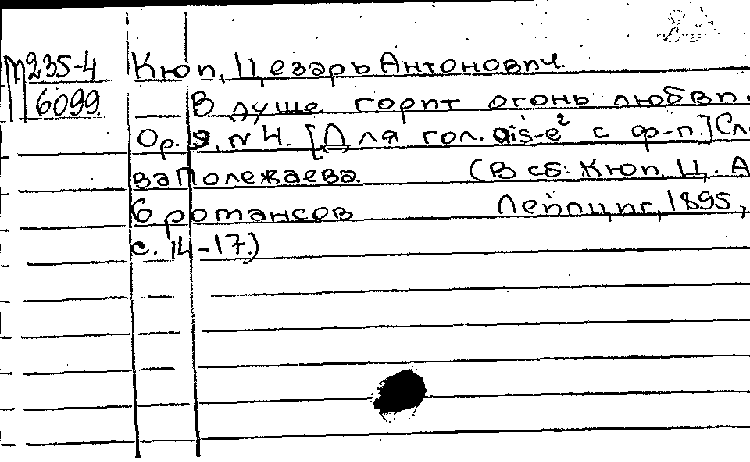 М235-4 Кюи, Цезарь Антонович.
6099 В душе горит огонь любви.
Op. 9, N 4. [Для гол. ais-e² с ф-п.] Сло
ва Полежаева (В сб: Кюи, Ц. А
6 романсов Лейпциг, 1895,
с. 14-17.)